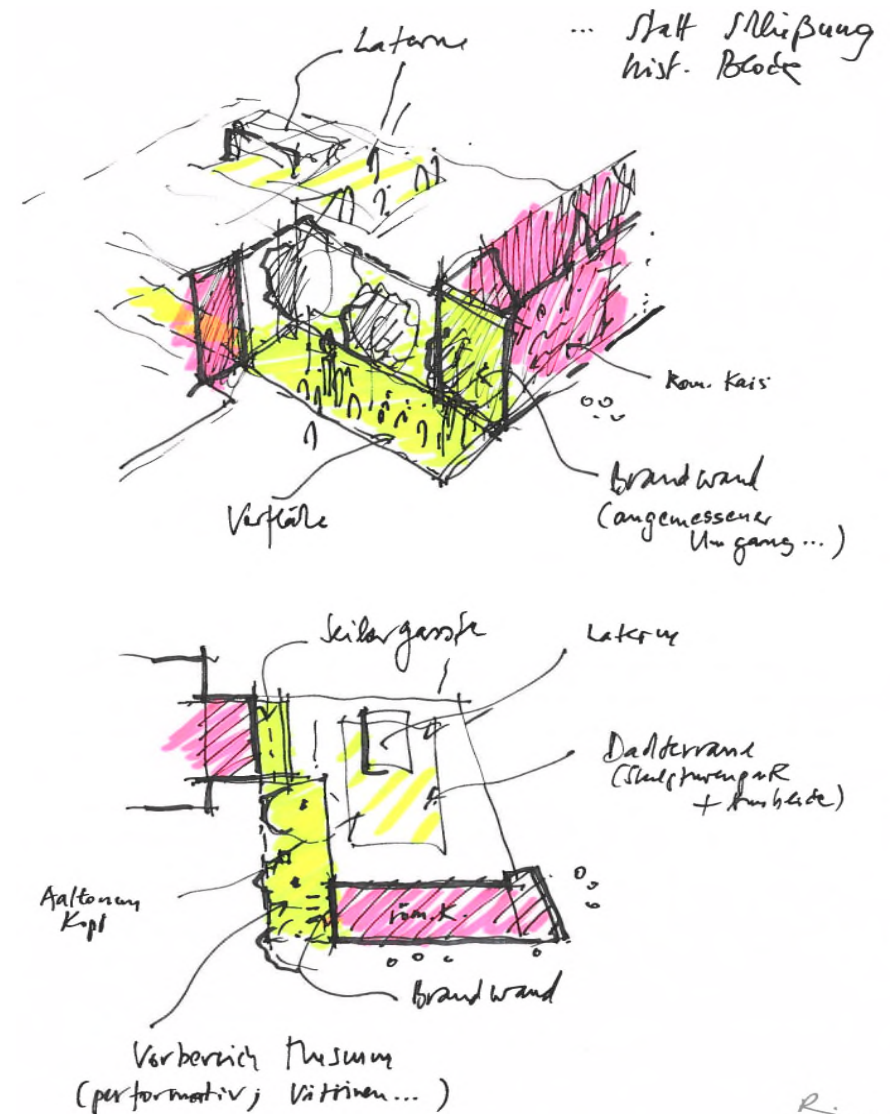 ... statt Schließung
hist. Block
Laterne
Röm. Kais
Brandwand
(angemessener
Umgang...)
Vorfläche
Seilergasse
Laterne
Dachterrasse
(Skulpturenpark
+ Ausblicke)
Kopf
röm. K.
Brandwand
Vorbereich Museum
(performativ; Vitrinen...)
R.